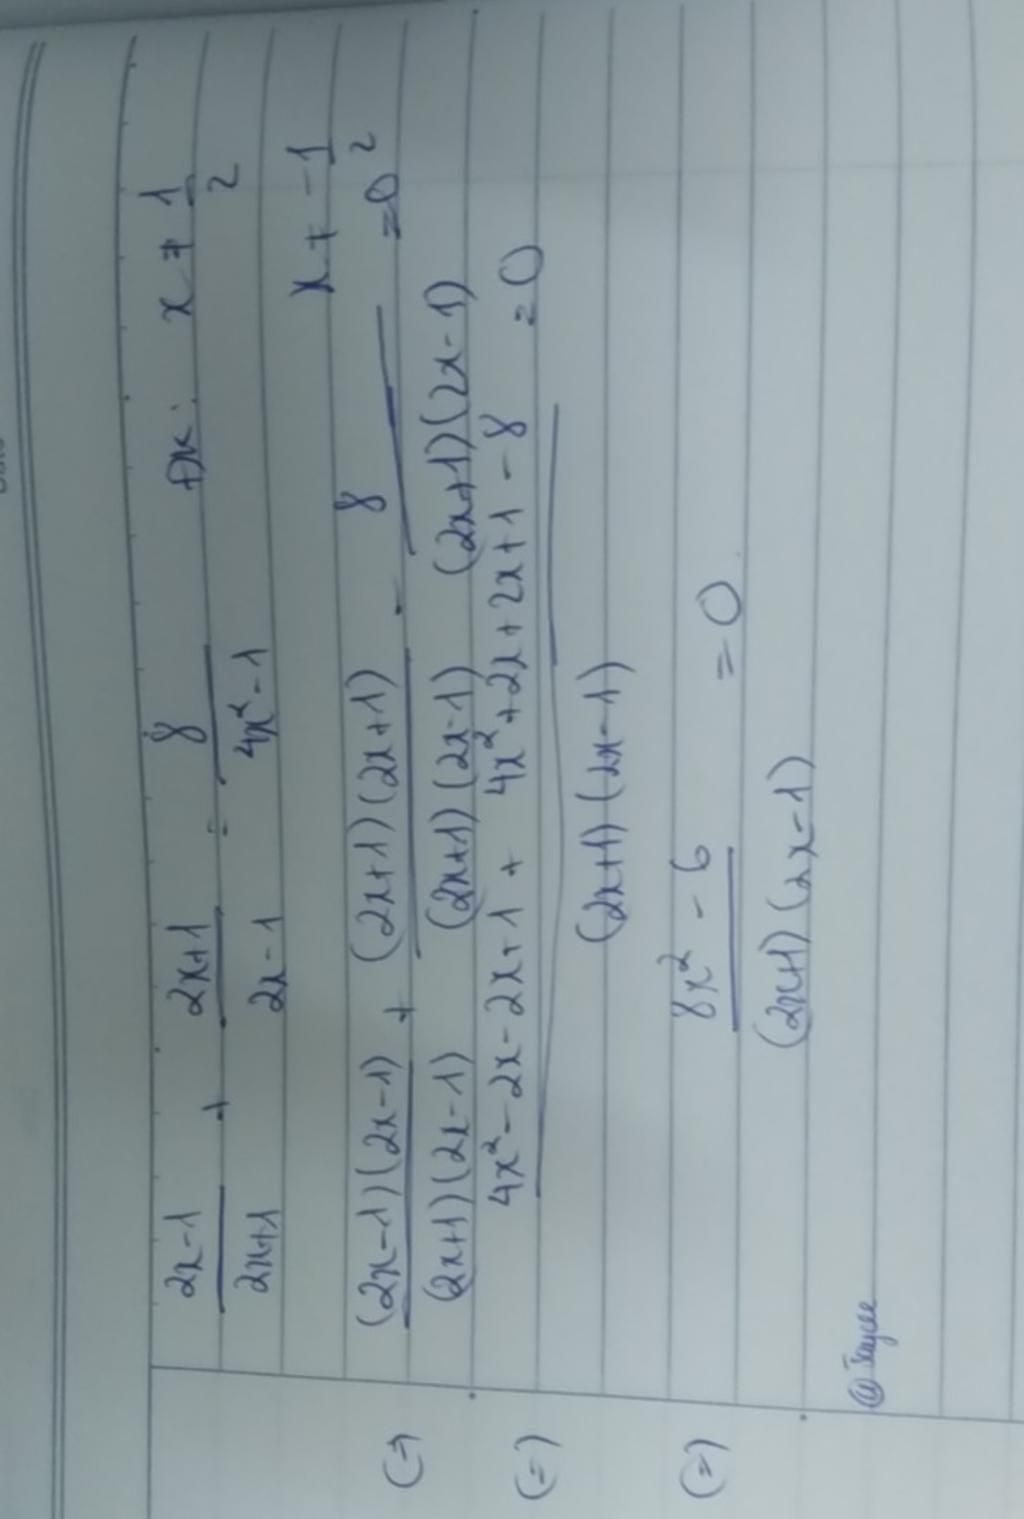 2x-1 / 2x+1 + 2x+1 / 2x-1 - 8 / 4x²-1 ĐK: x ≠ 1/2
x ≠ -1/2
(=) (2x-1)(2x-1) / (2x+1)(2x-1) + (2x+1)(2x+1) / (2x+1)(2x-1) - 8 / (2x+1)(2x-1) =0
(=) 4x²-2x-2x+1 + 4x²+2x+2x+1-8 / (2x+1)(2x-1) =0
(=) 8x²-6 / (2x+1)(2x-1) =0